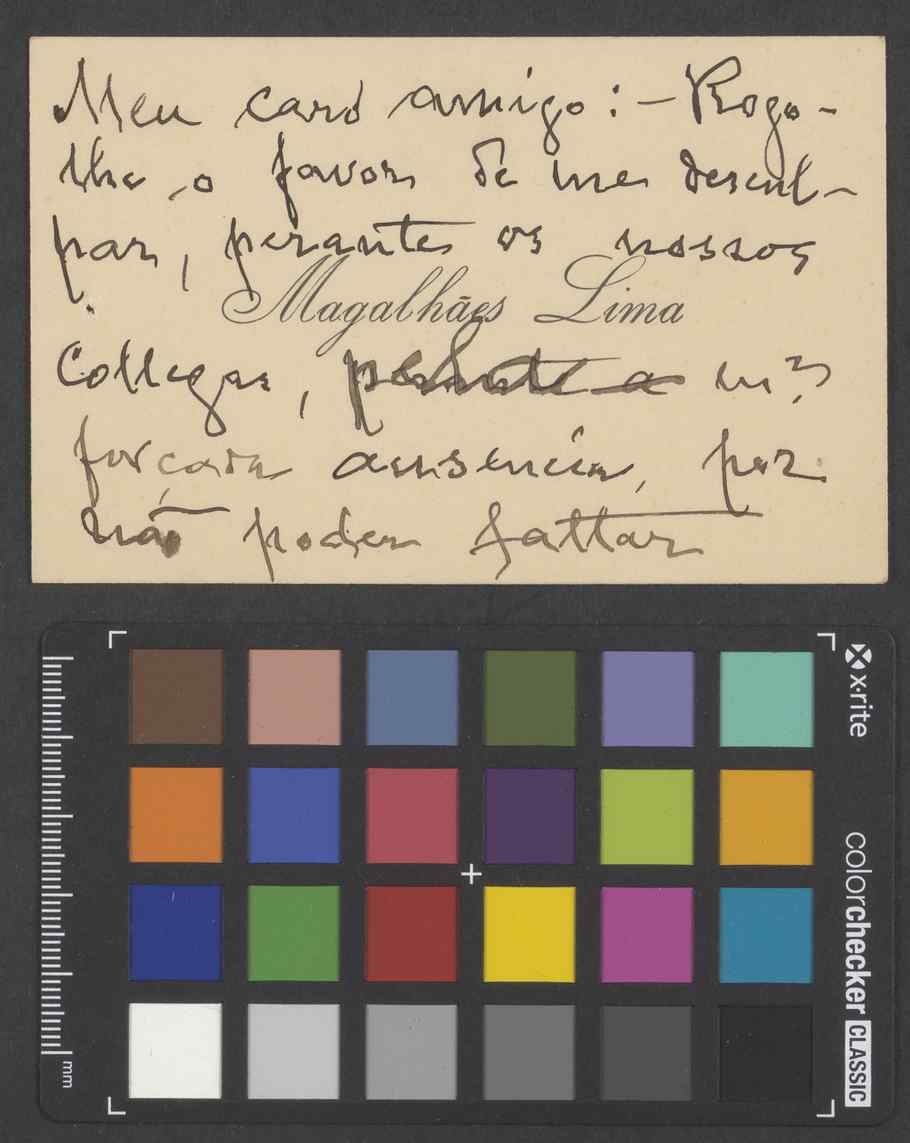 Meu caro amigo: — Rogo-
lhe o favor de me descul-
par, perante os nossos
Magalhães Lima
Collegas, perante a m.ª
forçada aussencia, por
não poder faltar
x·rite
colorchecker CLASSIC
mm